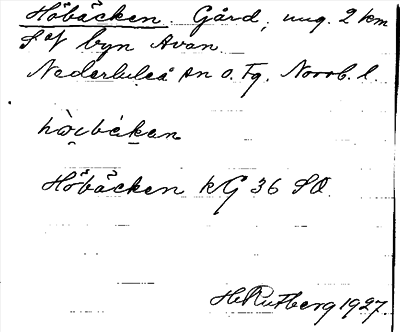 Höbäcken. Gård, ung. 2 km
S af byn Avan.
Nederluleå sn o. Tg. Norrb. l.
Höbäcken kG 36 SO.
H. Rutberg 1927.